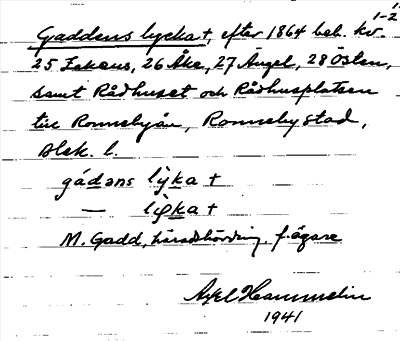 1-2
Gaddens lycka †, efter 1864 beb. kv.
25 Zakeus, 26 Åke, 27 Ängel, 28 Östen,
samt Rådhuset och Rådhusplatsen
till Ronnebyån, Ronneby stad,
Blek. l.
gádəns lỳka †
— lỳka †
M. Gadd, häradshövding, f. ägare
Axel Hammelin
1941